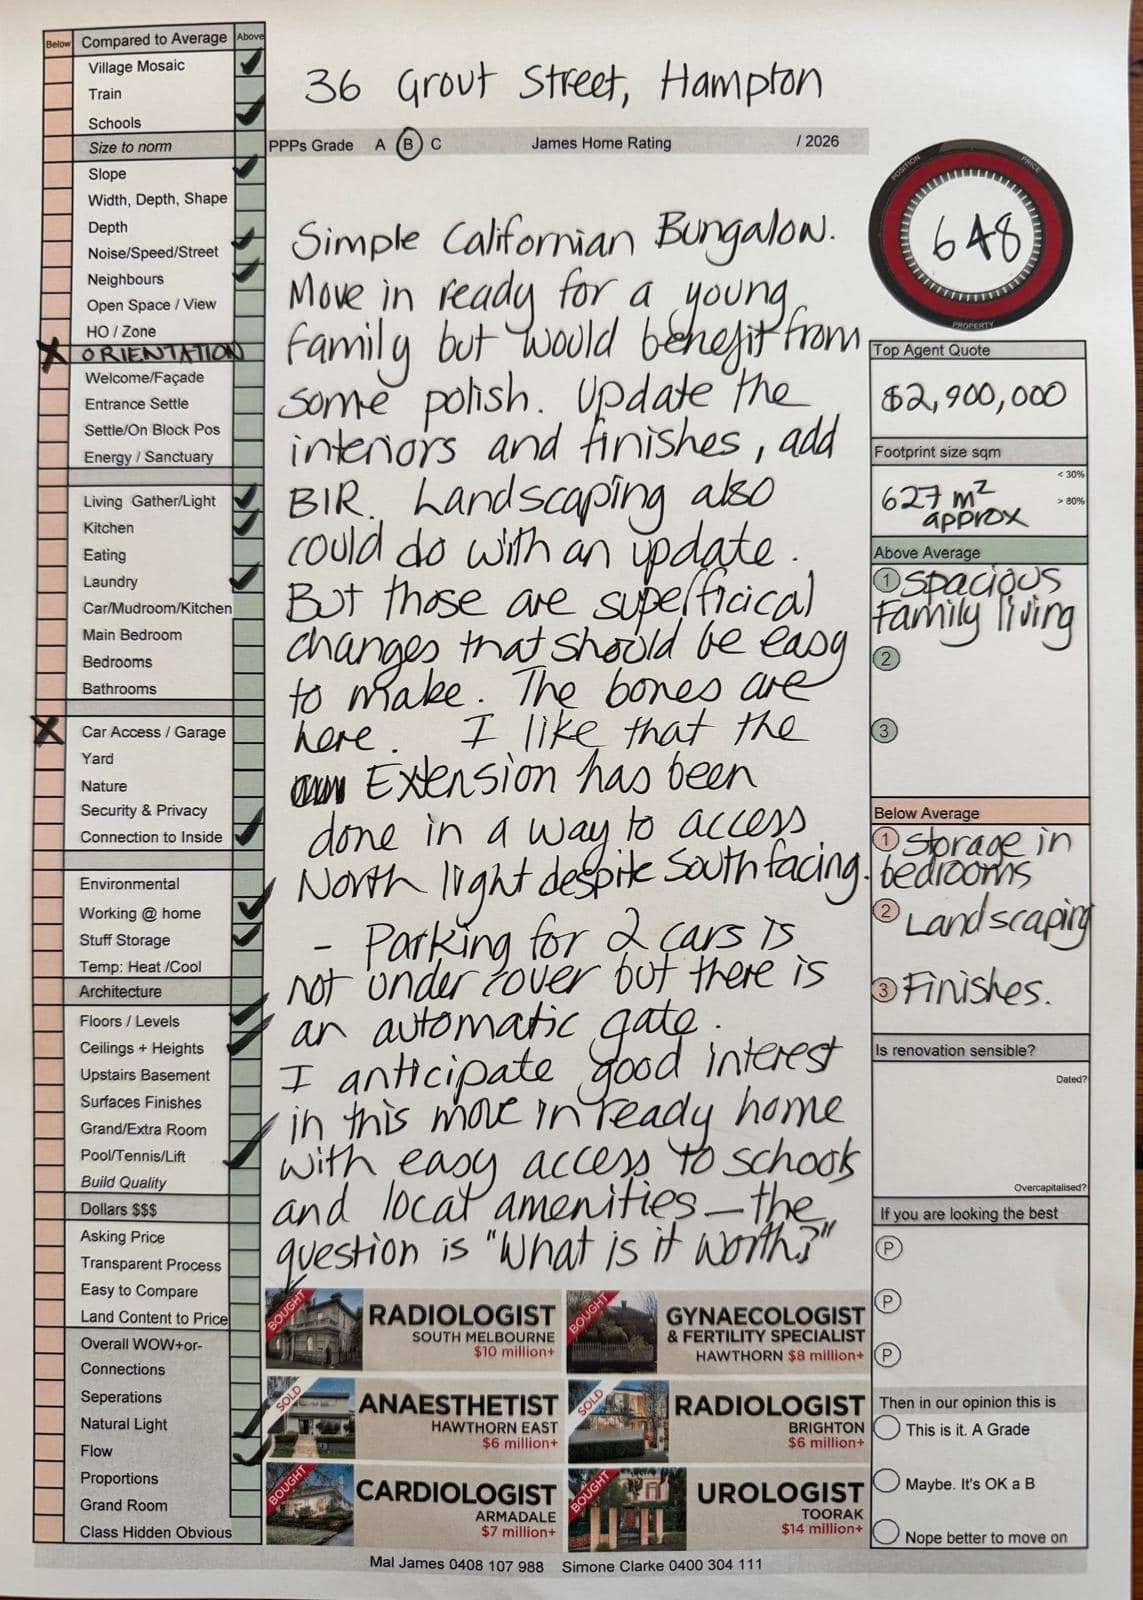 36 Grout Street, Hampton
Below Compared to Average Above
Village Mosaic
Train
Schools
Size to norm
Slope
Width, Depth, Shape
Depth
Noise/Speed/Street
Neighbours
Open Space / View
HO / Zone
ORIENTATION
Welcome/Façade
Entrance Settle
Settle/On Block Pos
Energy / Sanctuary
Living Gather/Light
Kitchen
Eating
Laundry
Car/Mudroom/Kitchen
Main Bedroom
Bedrooms
Bathrooms
Car Access / Garage
Yard
Nature
Security & Privacy
Connection to Inside
Environmental
Working @ home
Stuff Storage
Temp: Heat /Cool
Architecture
Floors / Levels
Ceilings + Heights
Upstairs Basement
Surfaces Finishes
Grand/Extra Room
Pool/Tennis/Lift
Build Quality
Dollars $$$
Asking Price
Transparent Process
Easy to Compare
Land Content to Price
Overall WOW+or-
Connections
Seperations
Natural Light
Flow
Proportions
Grand Room
Class Hidden Obvious
PPPs Grade A B C James Home Rating / 2026
Simple Californian Bungalow.
Move in ready for a young
family but would benefit from
some polish. Update the
interiors and finishes, add
BIR. Landscaping also
could do with an update.
But those are superficical
changes that should be easy
to make. The bones are
here. I like that the
Extension has been
done in a way to access
North light despite South facing.
- Parking for 2 cars is
not under cover but there is
an automatic gate.
I anticipate good interest
in this move in ready home
with easy access to schools
and local amenities - the
question is "What is it worth?"
POSITION
PRICE
648
PROPERTY
Top Agent Quote
$2,900,000
Footprint size sqm
< 30%
627 m²
> 80%
approx
Above Average
1 Spacious
Family living
2
3
Below Average
1 Storage in
bedrooms
2 Landscaping
3 Finishes.
Is renovation sensible?
Dated?
Overcapitalised?
If you are looking the best
P
P
P
Then in our opinion this is
This is it. A Grade
Maybe. It's OK a B
Nope better to move on
BOUGHT
RADIOLOGIST
SOUTH MELBOURNE
$10 million+
BOUGHT
GYNAECOLOGIST
& FERTILITY SPECIALIST
HAWTHORN $8 million+
SOLD
ANAESTHETIST
HAWTHORN EAST
$6 million+
SOLD
RADIOLOGIST
BRIGHTON
$6 million+
BOUGHT
CARDIOLOGIST
ARMADALE
$7 million+
BOUGHT
UROLOGIST
TOORAK
$14 million+
Mal James 0408 107 988 Simone Clarke 0400 304 111